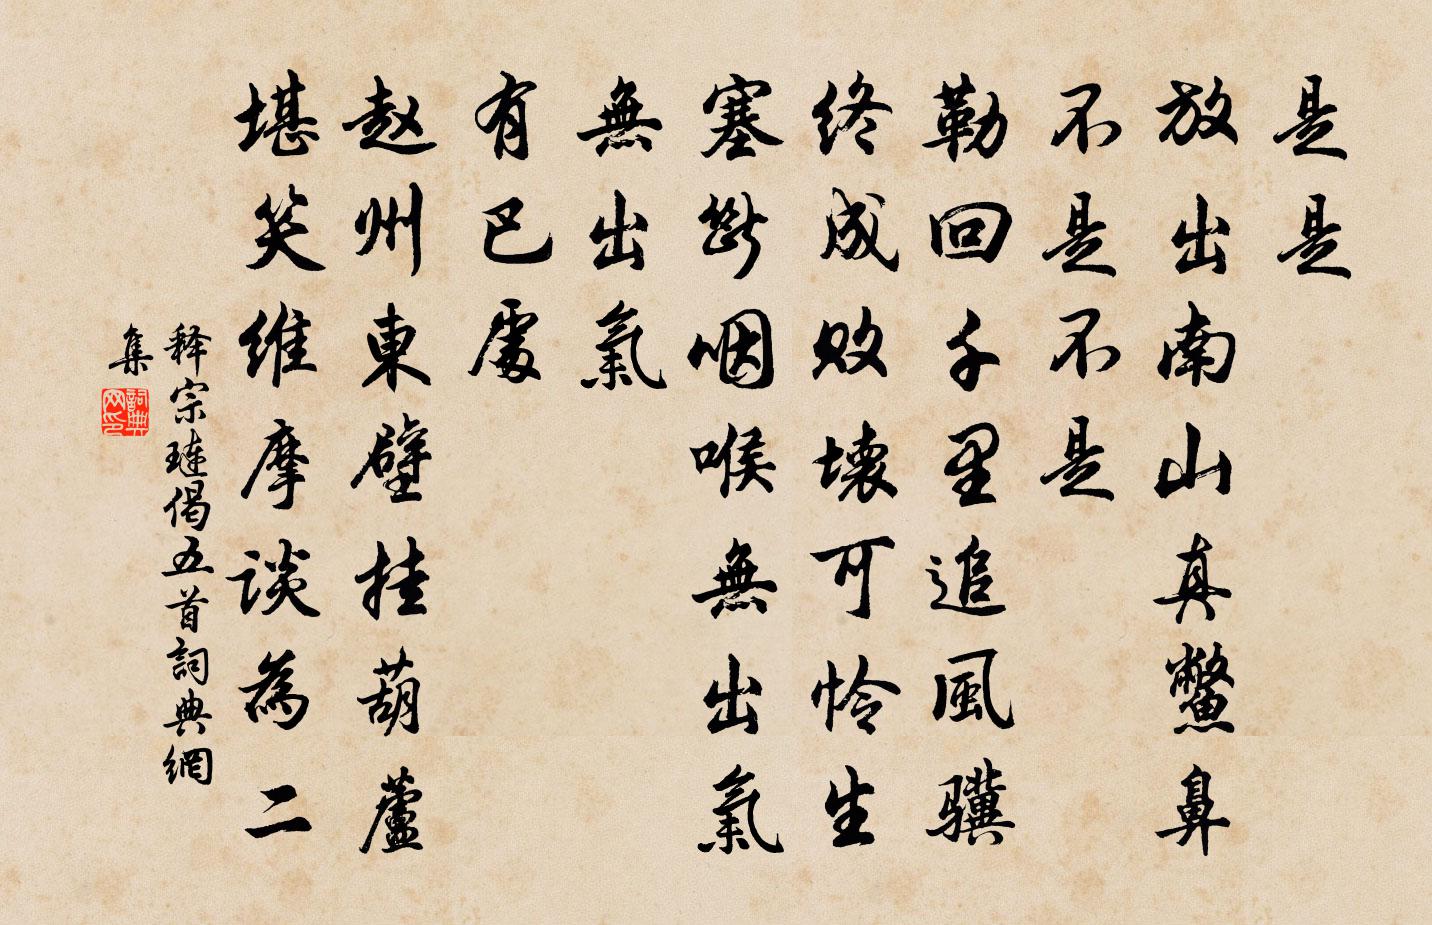 是是
放出南山真鱉鼻
不是不是
勒回千里追風骥
終成敗壞可怜生
塞斷咽喉無出氣
無出氣
有巴處
赵州東壁挂葫蘆
堪笑維摩談為二
释宗璉偈五首詞典網
集
詞典网印